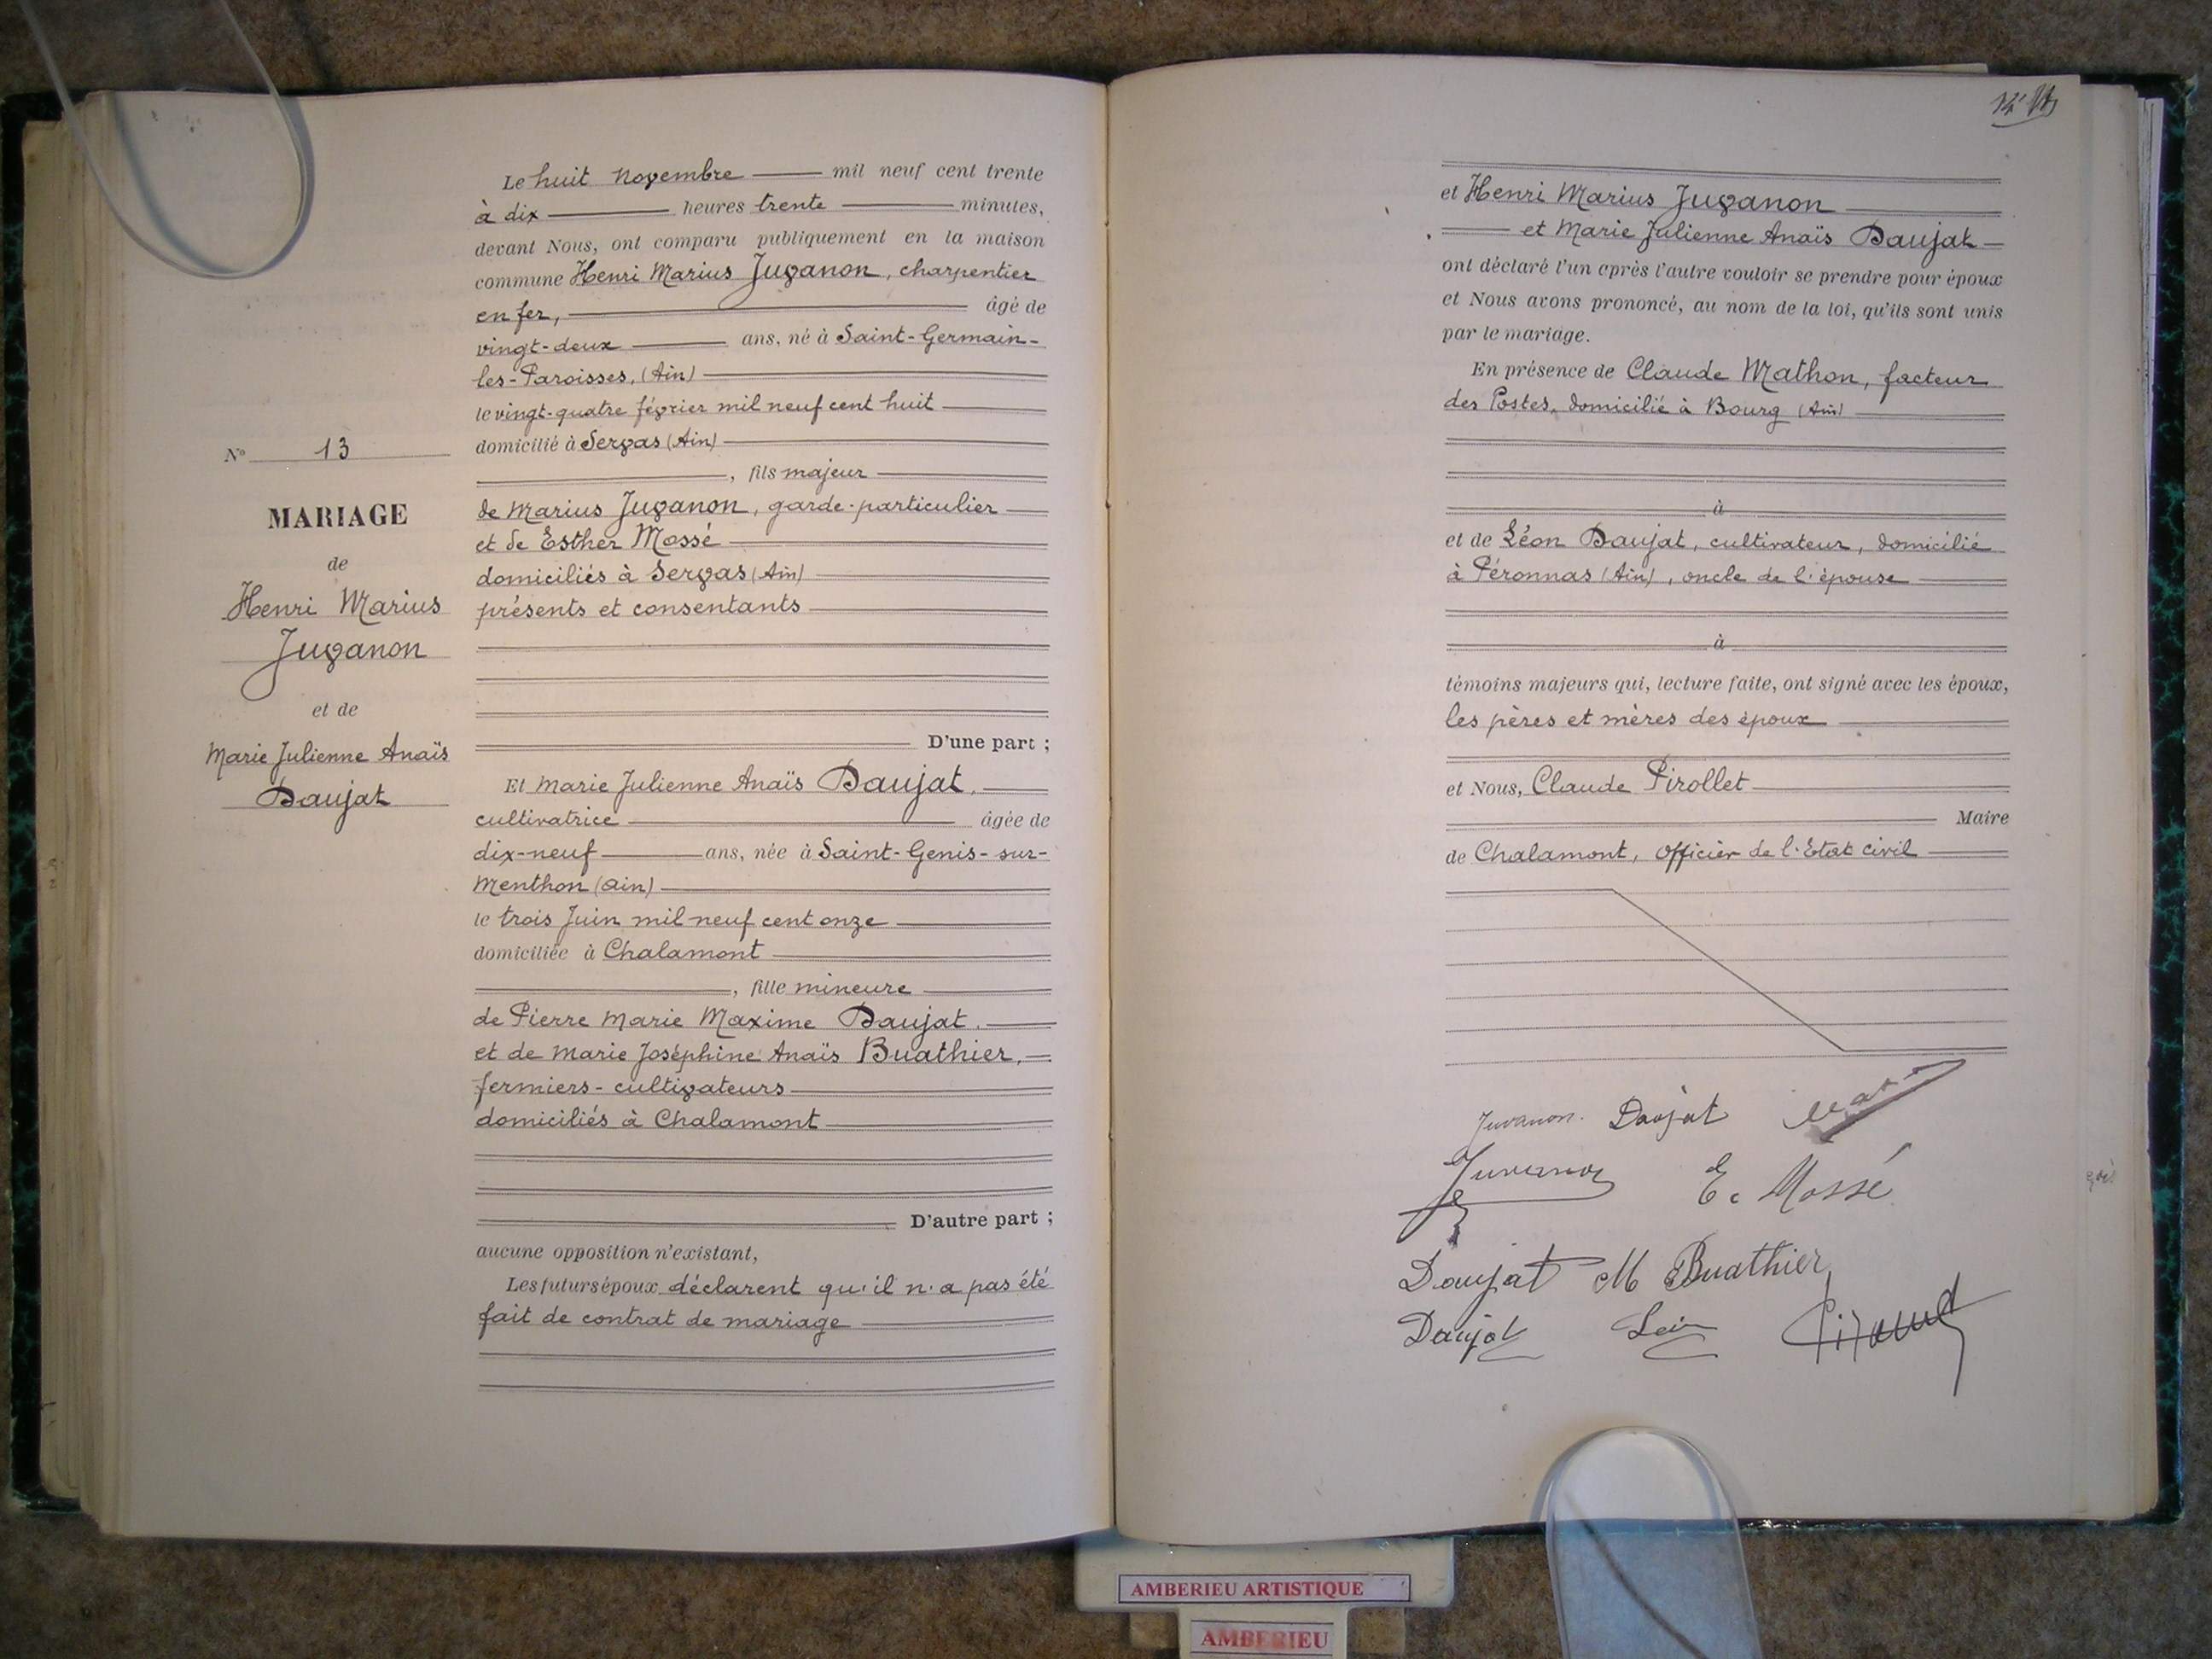 Le huit Novembre mil neuf cent trente
à dix heures trente minutes,
devant Nous, ont comparu publiquement en la maison
commune Henri Marius Juvanon, charpentier
en fer, âgé de
vingt-deux ans, né à Saint-Germain-
les-Paroisses, (Ain)
le vingt-quatre février mil neuf cent huit
domicilié à Servas (Ain)
, fils majeur
de Marius Juvanon, garde-particulier
et de Esther Mossé
domiciliés à Servas (Ain)
présents et consentants
D'une part ;
Et Marie Julienne Anaïs Daujat,
cultivatrice âgée de
dix-neuf ans, née à Saint-Genis-sur-
Menthon (Ain)
le trois Juin mil neuf cent onze
domiciliée à Chalamont
, fille mineure
de Pierre Marie Maxime Daujat,
et de Marie Joséphine Anaïs Buathier,
fermiers-cultivateurs
domiciliés à Chalamont
D'autre part ;
aucune opposition n'existant,
Les futurs époux déclarent qu'il n'a pas été
fait de contrat de mariage
N° 13
MARIAGE
de
Henri Marius
Juvanon
et de
Marie Julienne Anaïs
Daujat
et Henri Marius Juvanon
et Marie Julienne Anaïs Daujat
ont déclaré l'un après l'autre vouloir se prendre pour époux
et Nous avons prononcé, au nom de la loi, qu'ils sont unis
par le mariage.
En présence de Claude Mathon, facteur
des Postes, domicilié à Bourg (Ain)
à
et de Léon Daujat, cultivateur, domicilié
à Péronnas (Ain), oncle de l'épouse
à
témoins majeurs qui, lecture faite, ont signé avec les époux,
les pères et mères des époux
et Nous, Claude Pirollet
Maire
de Chalamont, Officier de l'Etat civil
Juvanon. Daujat
Juvanon E. Mossé
Daujat M Buathier
Daujat Léon
AMBERIEU ARTISTIQUE
AMBERIEU